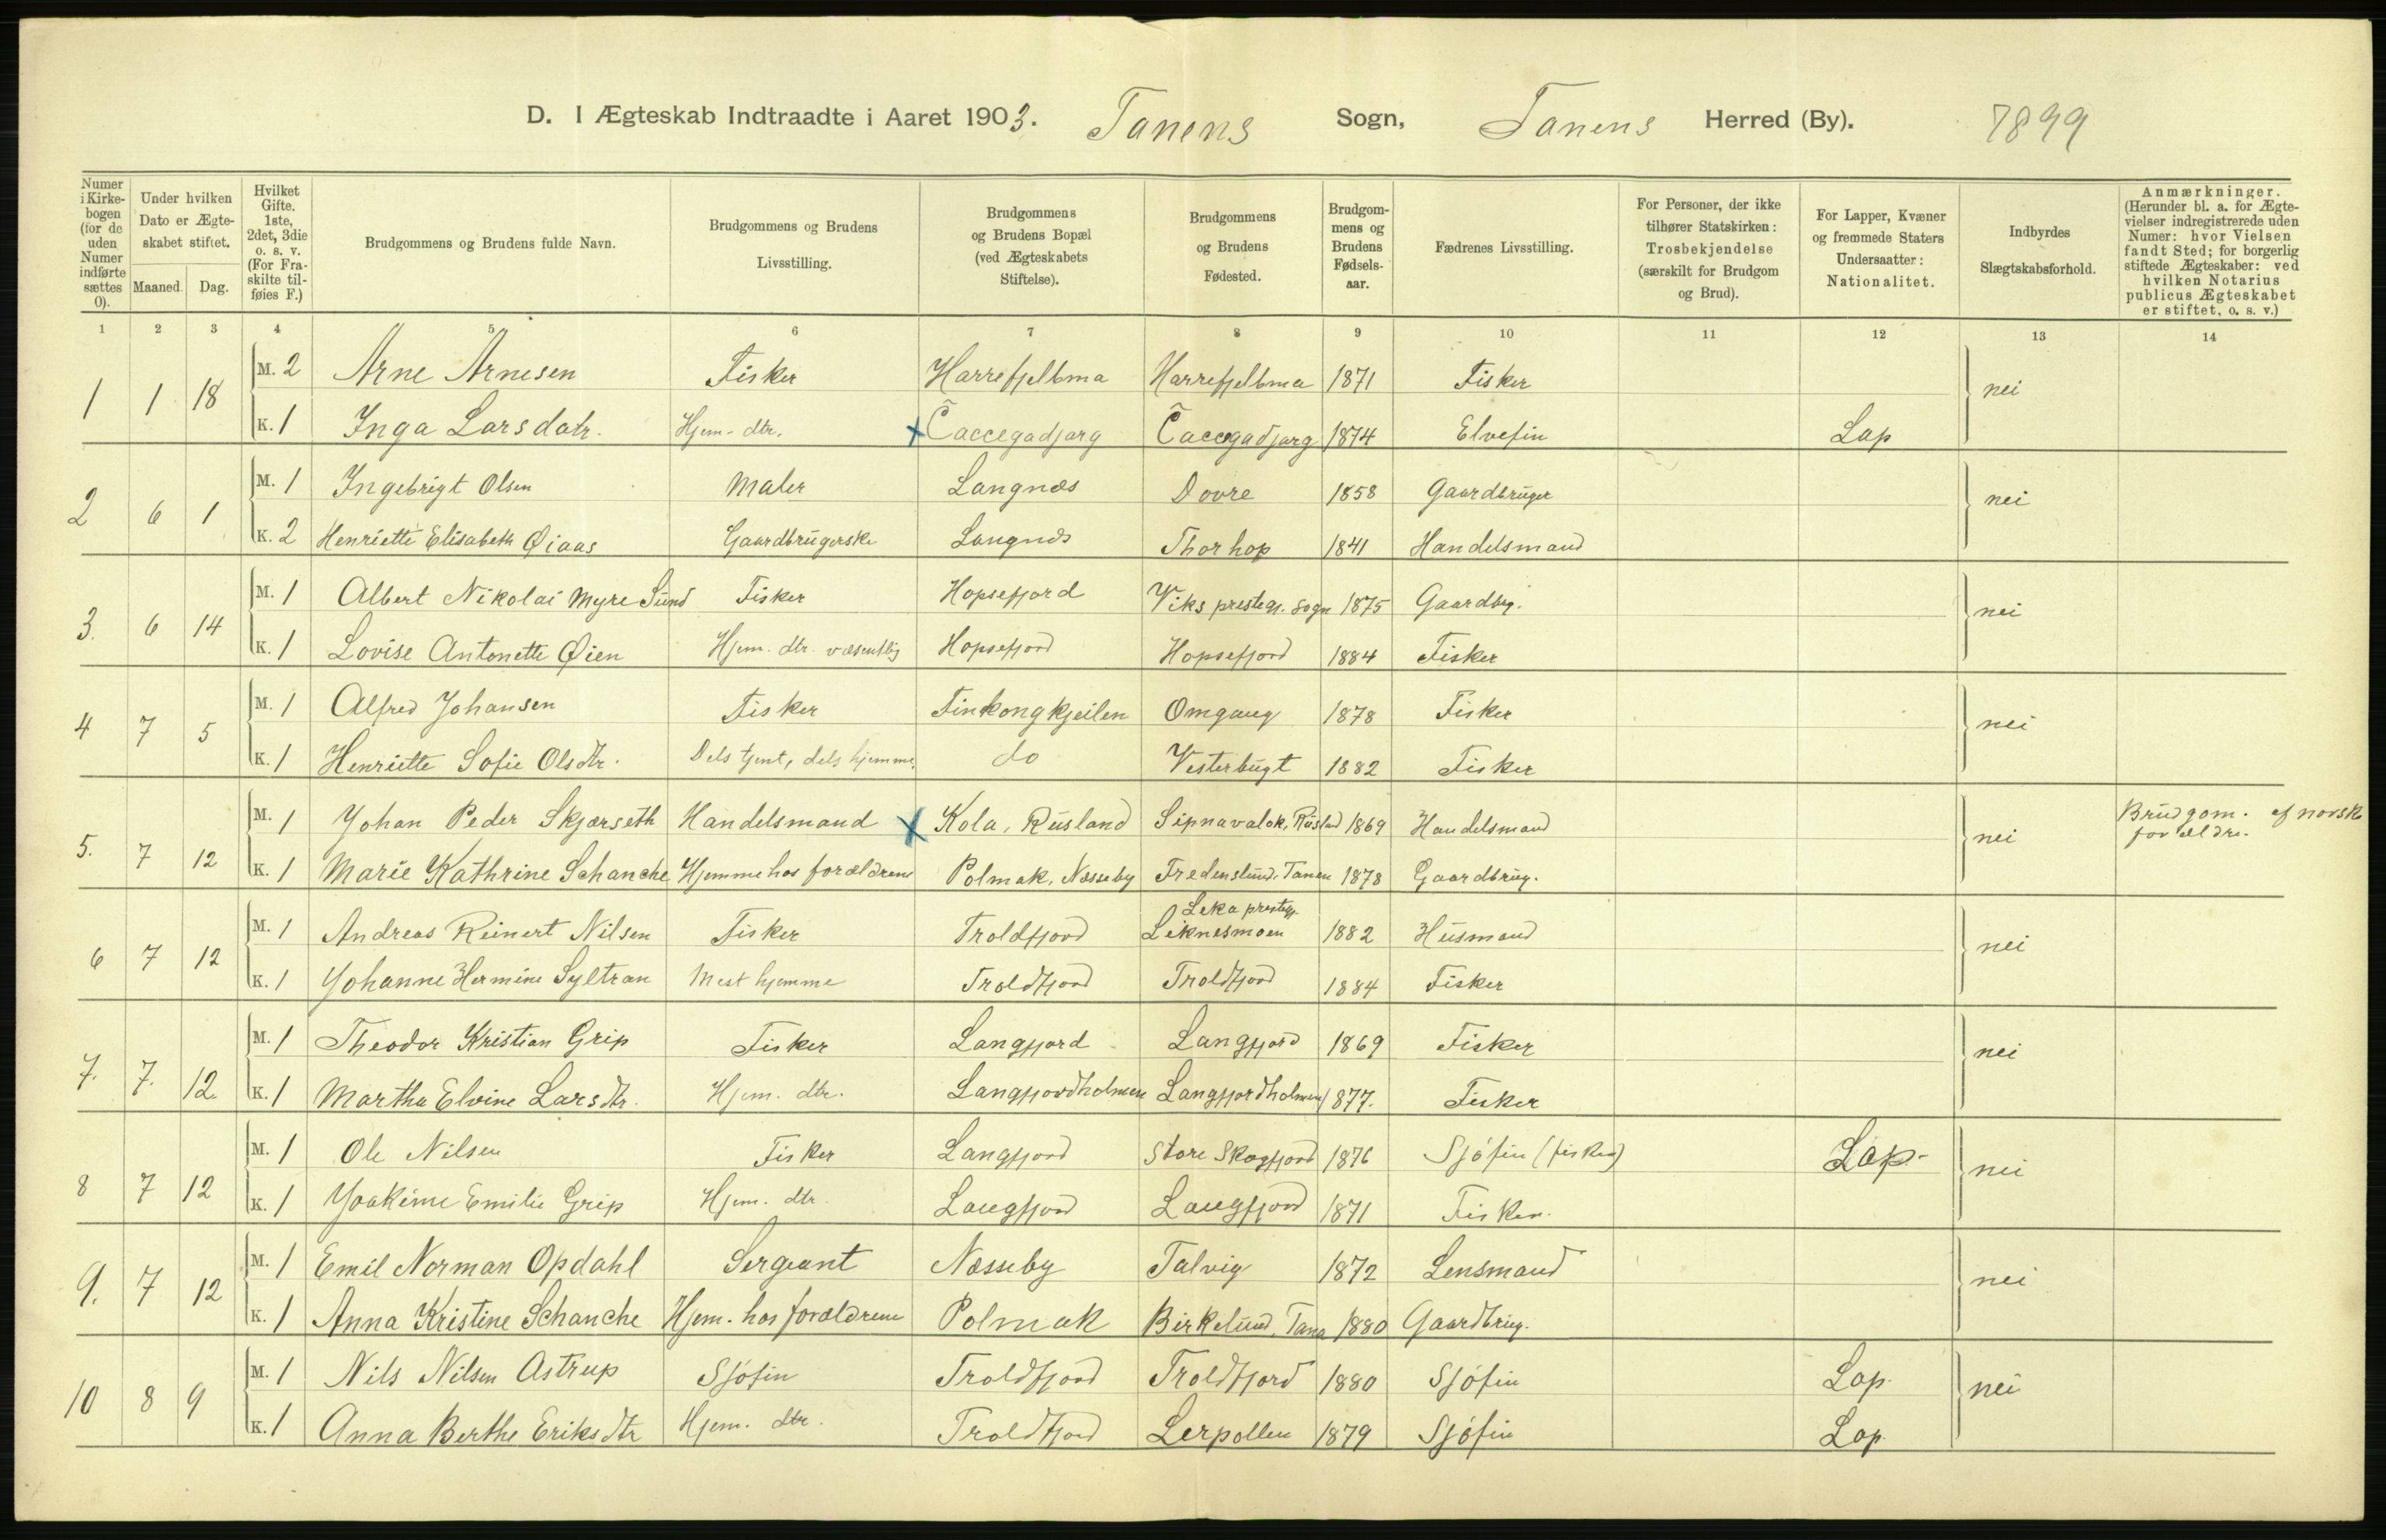 D. I Ægteskab Indtraadte i Aaret 1903. Tanens Sogn, Tanens Herred (By). 7899
Numer i Kirke-bogen (for de uden Numer indførte sættes 0).
Under hvilken Dato er Ægte-skabet stiftet.
Maaned. Dag.
Hvilket Gifte. 1ste, 2det, 3die o. s. v. (For Fra-skilte til-føies F.)
Brudgommens og Brudens fulde Navn.
Brudgommens og Brudens Livsstilling.
Brudgommens og Brudens Bopæl (ved Ægteskabets Stiftelse).
Brudgommens og Brudens Fødested.
Brudgom-mens og Brudens Fødsels-aar.
Fædrenes Livsstilling.
For Personer, der ikke tilhører Statskirken: Trosbekjendelse (særskilt for Brudgom og Brud).
For Lapper, Kvæner og fremmede Staters Undersaatter: Nationalitet.
Indbyrdes Slægtskabsforhold.
Anmærkninger. (Herunder bl. a. for Ægte-vielser indregistrerede uden Numer: hvor Vielsen fandt Sted; for borgerlig stiftede Ægteskaber: ved hvilken Notarius publicus Ægteskabet er stiftet, o. s. v.)
1 2 3 4 5 6 7 8 9 10 11 12 13 14
1 1 18 M. 2 Arne Arnesen Fisker Harrefjelbma Harrefjelbma 1871 Fisker nei
K. 1 Inga Larsdatr. Hjem. dtr. x Čaccegadjarg Čaccegadjarg 1874 Elvefin Lap
2 6 1 M. 1 Ingebrigt Olsen Maler Langnæs Dovre 1858 Gaardbruger nei
K. 2 Henriette Elisabeth Øiaas Gaardbrugerske Langnæs Thorhop 1841 Handelsmand
3. 6 14 M. 1 Albert Nikolai Myre Sund Fisker Hopsefjord Viks prestegj. Sogn 1875 Gaardbrg. nei
K. 1 Lovise Antonette Øien Hjem. dtr. væsentlig Hopsefjord Hopsefjord 1884 Fisker
4 7 5 M. 1 Alfred Johansen Fisker Finkongkjeilen Omgang 1878 Fisker nei
K. 1 Henriette Sofie Olsdtr. Dels tjent, dels hjemme. do Vesterbugt 1882 Fisker
5. 7 12 M. 1 Johan Peder Skjærseth Handelsmand x Kola, Rusland Sipnavalok, Rusland 1869 Handelsmand nei Brudgom. af norsk
forældre.
K. 1 Marie Kathrine Schanche Hjemme hos forældrene Polmak, Næsseby Fredenslund, Tanen 1878 Gaardbrug.
Leka prestegj.
6 7 12 M. 1 Andreas Reinert Nilsen Fisker Troldfjord Leknesmoen 1882 Husmand nei
K. 1 Johanne Hermine Syltran Mest hjemme Troldfjord Troldfjord 1884 Fisker
7. 7. 12. M. 1 Theodor Kristian Grip Fisker Langfjord Langfjord 1869 Fisker nei
K. 1 Martha Elvine Larsdtr. Hjem. dtr. Langfjordholmen Langfjordholmen 1877. Fisker
8 7 12 M. 1 Ole Nilsen Fisker Langfjord Store Skogfjord 1876 Sjøfin (fisker) Lap- nei
K. 1 Joakime Emilie Grip Hjem. dtr. Langfjord Langfjord 1871 Fisker.
9. 7 12 M. 1 Emil Norman Opdahl Sergeant Næsseby Talvig 1872 Lensmand nei
K. 1 Anna Kristine Schanche Hjem. hos forældrene Polmak Birkelund, Tana 1880 Gaardbrug.
10 8 9 M. 1 Nils Nilsen Astrup Sjøfin Troldfjord Troldfjord 1880 Sjøfin Lap. nei
K. 1 Anna Berthe Eriksdtr Hjem. dtr. Troldfjord Lerpollen 1879 Sjøfin Lap.